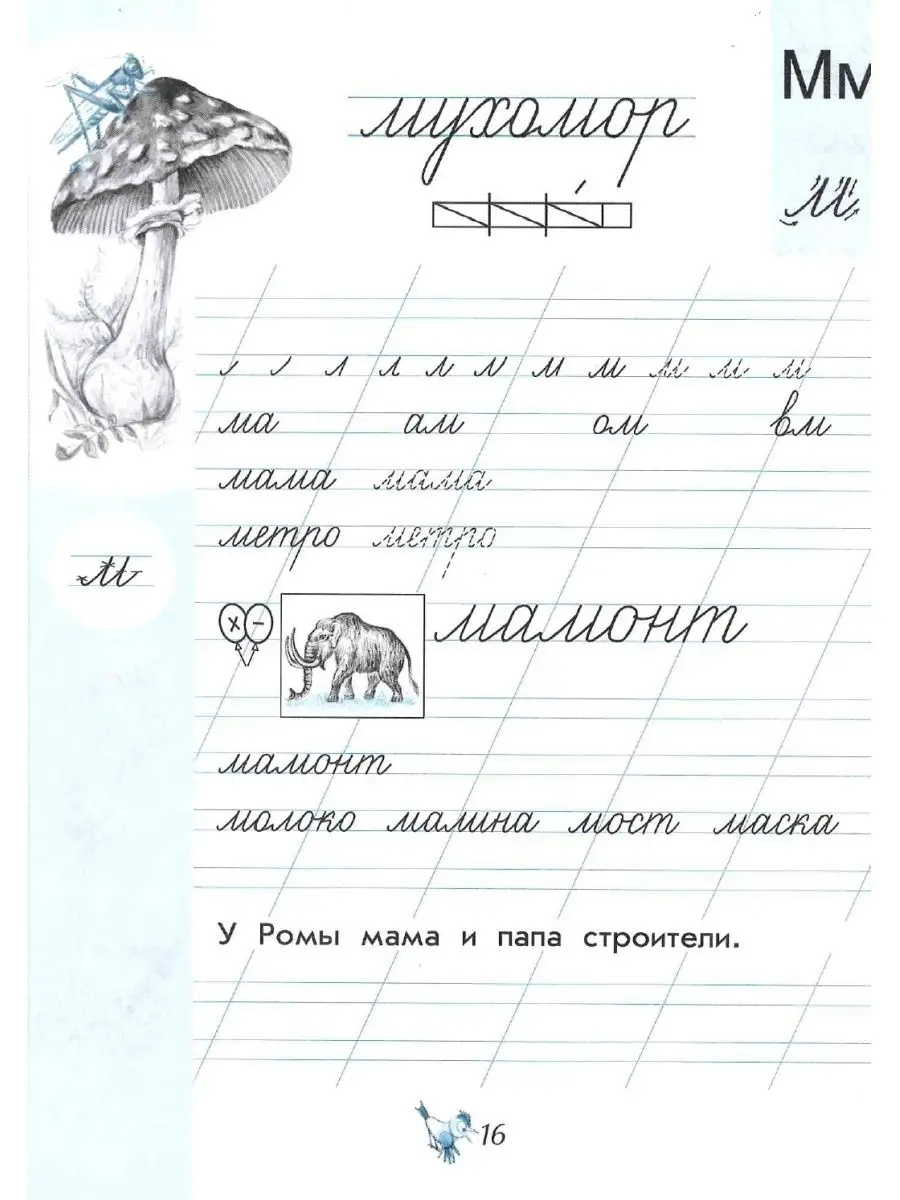 Мм
мухомор
м
л л л м м м м м м
ма ам ом вм
мама мама
метро метро
м
х – мамонт
мамонт
молоко малина мост маска
У Ромы мама и папа строители.
16